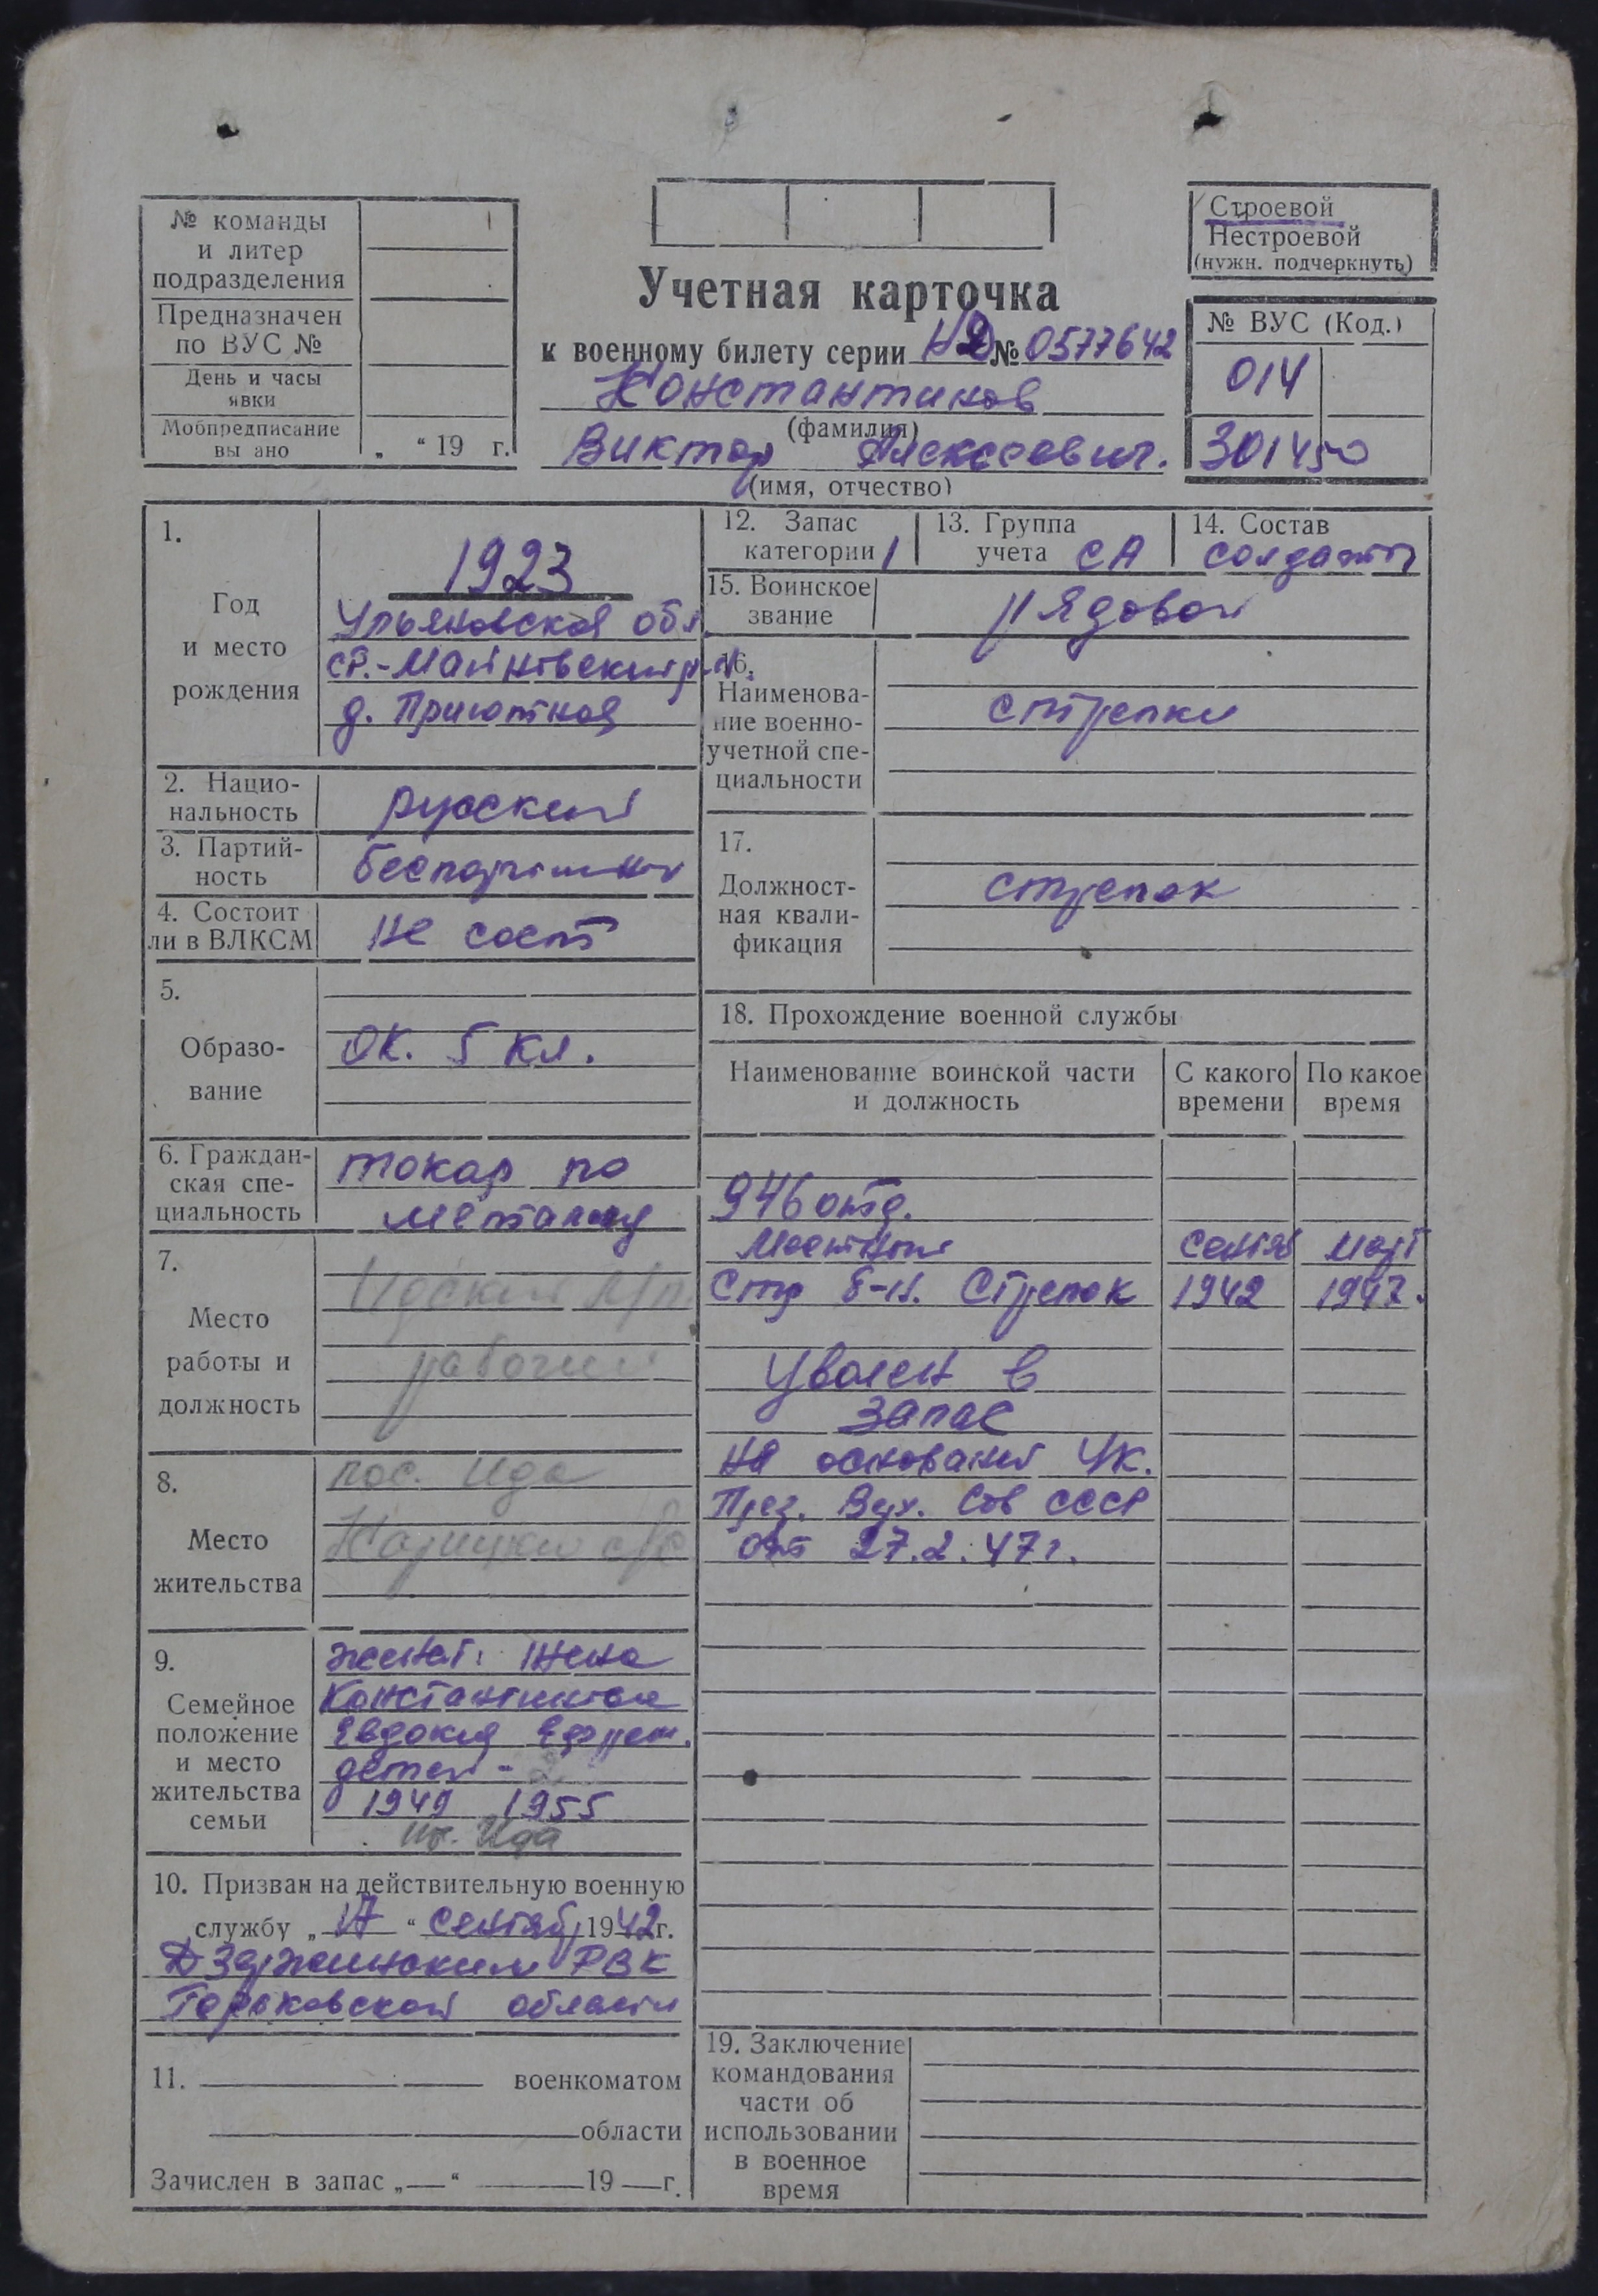 № команды
и литер
подразделения
Предназначен
по ВУС №
День и часы
явки
Мобпредписание
вы ано
„ “ 19 г.
Учетная карточка
к военному билету серии НД № 0577642
Константинов
(фамилия)
Виктор Алексеевич.
(имя, отчество)
Строевой
Нестроевой
(нужн. подчеркнуть)
№ ВУС (Код.)
014
301450
1.
Год
и место
рождения
1923
Ульяновская обл
Ср.-Майновский р-н.
д. Приютная
2. Нацио-
нальность
русский
3. Партий-
ность
беспартийн
4. Состоит
ли в ВЛКСМ
не сост
5.
Образо-
вание
ок. 5 кл.
6. Граждан-
ская спе-
циальность
токар по
металлу
7.
Место
работы и
должность
Идский л/п.
рабочий
8.
Место
жительства
пос. Ида
с/с
9.
Семейное
положение
и место
жительства
семьи
женат: жена
Константинова
Евдокия Ефрем.
детей - 2
1949 1955
Ида
10. Призван на действительную военную
службу „ 17 “ сентябр 1942 г.
Дзержинским РВК
Горьковской области
11. военкоматом
области
Зачислен в запас „ “ 19 г.
12. Запас
категории 1
13. Группа
учета СА
14. Состав
солдаты
15. Воинское
звание
рядовой
16.
Наименова-
ние военно-
учетной спе-
циальности
стрелки
17.
Должност-
ная квали-
фикация
стрелок
18. Прохождение военной службы
Наименование воинской части
и должность
С какого
времени
По какое
время
946 отд.
Местный
Стр б-н. Стрелок
сентяб
1942
март
1947.
Уволен в
запас
на основании Ук.
През. Верх. Сов СССР
от 27.2.47г.
19. Заключение
командования
части об
использовании
в военное
время